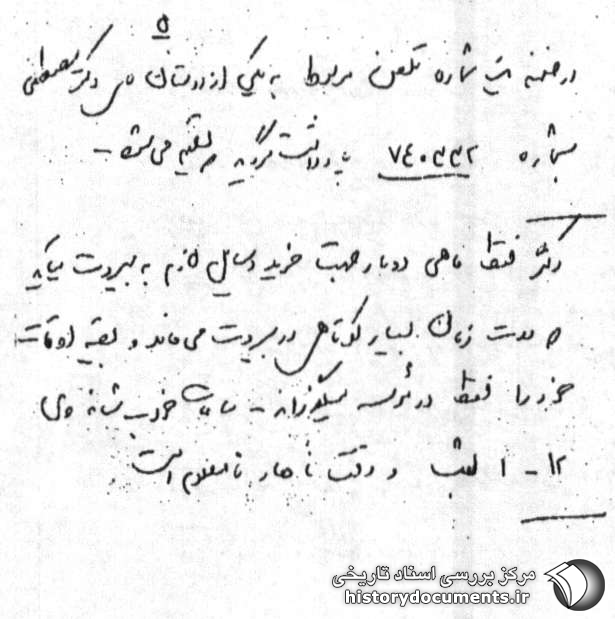 ۵
در ضمن این شماره تلفن مربوط به یکی از دوستان دکتر مصطفی
بشماره ۷۴۰۳۳۲ یادداشت گردید تقدیم می
دکتر فقط ماهی دو بار جهت خرید وسایل لازم به بیروت میآید
و مدت زمان بسیار کوتاهی در بیروت می‌ماند و بقیه اوقات
خود را فقط در مؤسسه میگذراند - ساعات خواب شبانه وی
۱۲ - ۱ لشب و وقت ناهار نامعلوم است.
مرکز بررسی اسناد تاریخی
historydocuments.ir